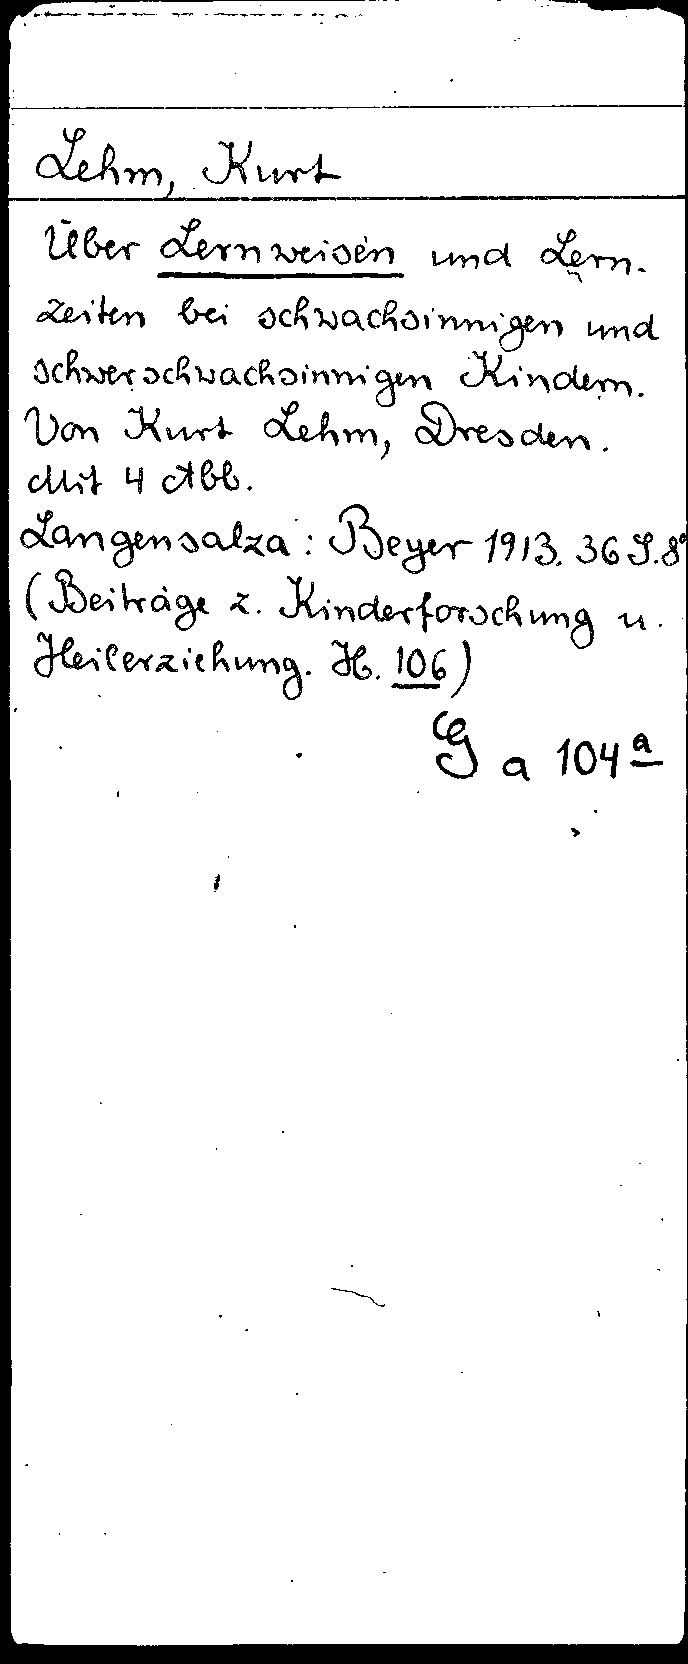 Lehm, Kurt
Über Lernweisen und Lern-
zeiten bei schwachsinnigen und
schwerschwachsinnigen Kindern.
Von Kurt Lehm, Dresden.
Mit 4 Abb.
Langensalza: Beyer 1913. 36 S. 8°
(Beiträge z. Kinderforschung u.
Heilerziehung. H. 106)
G a 104 a